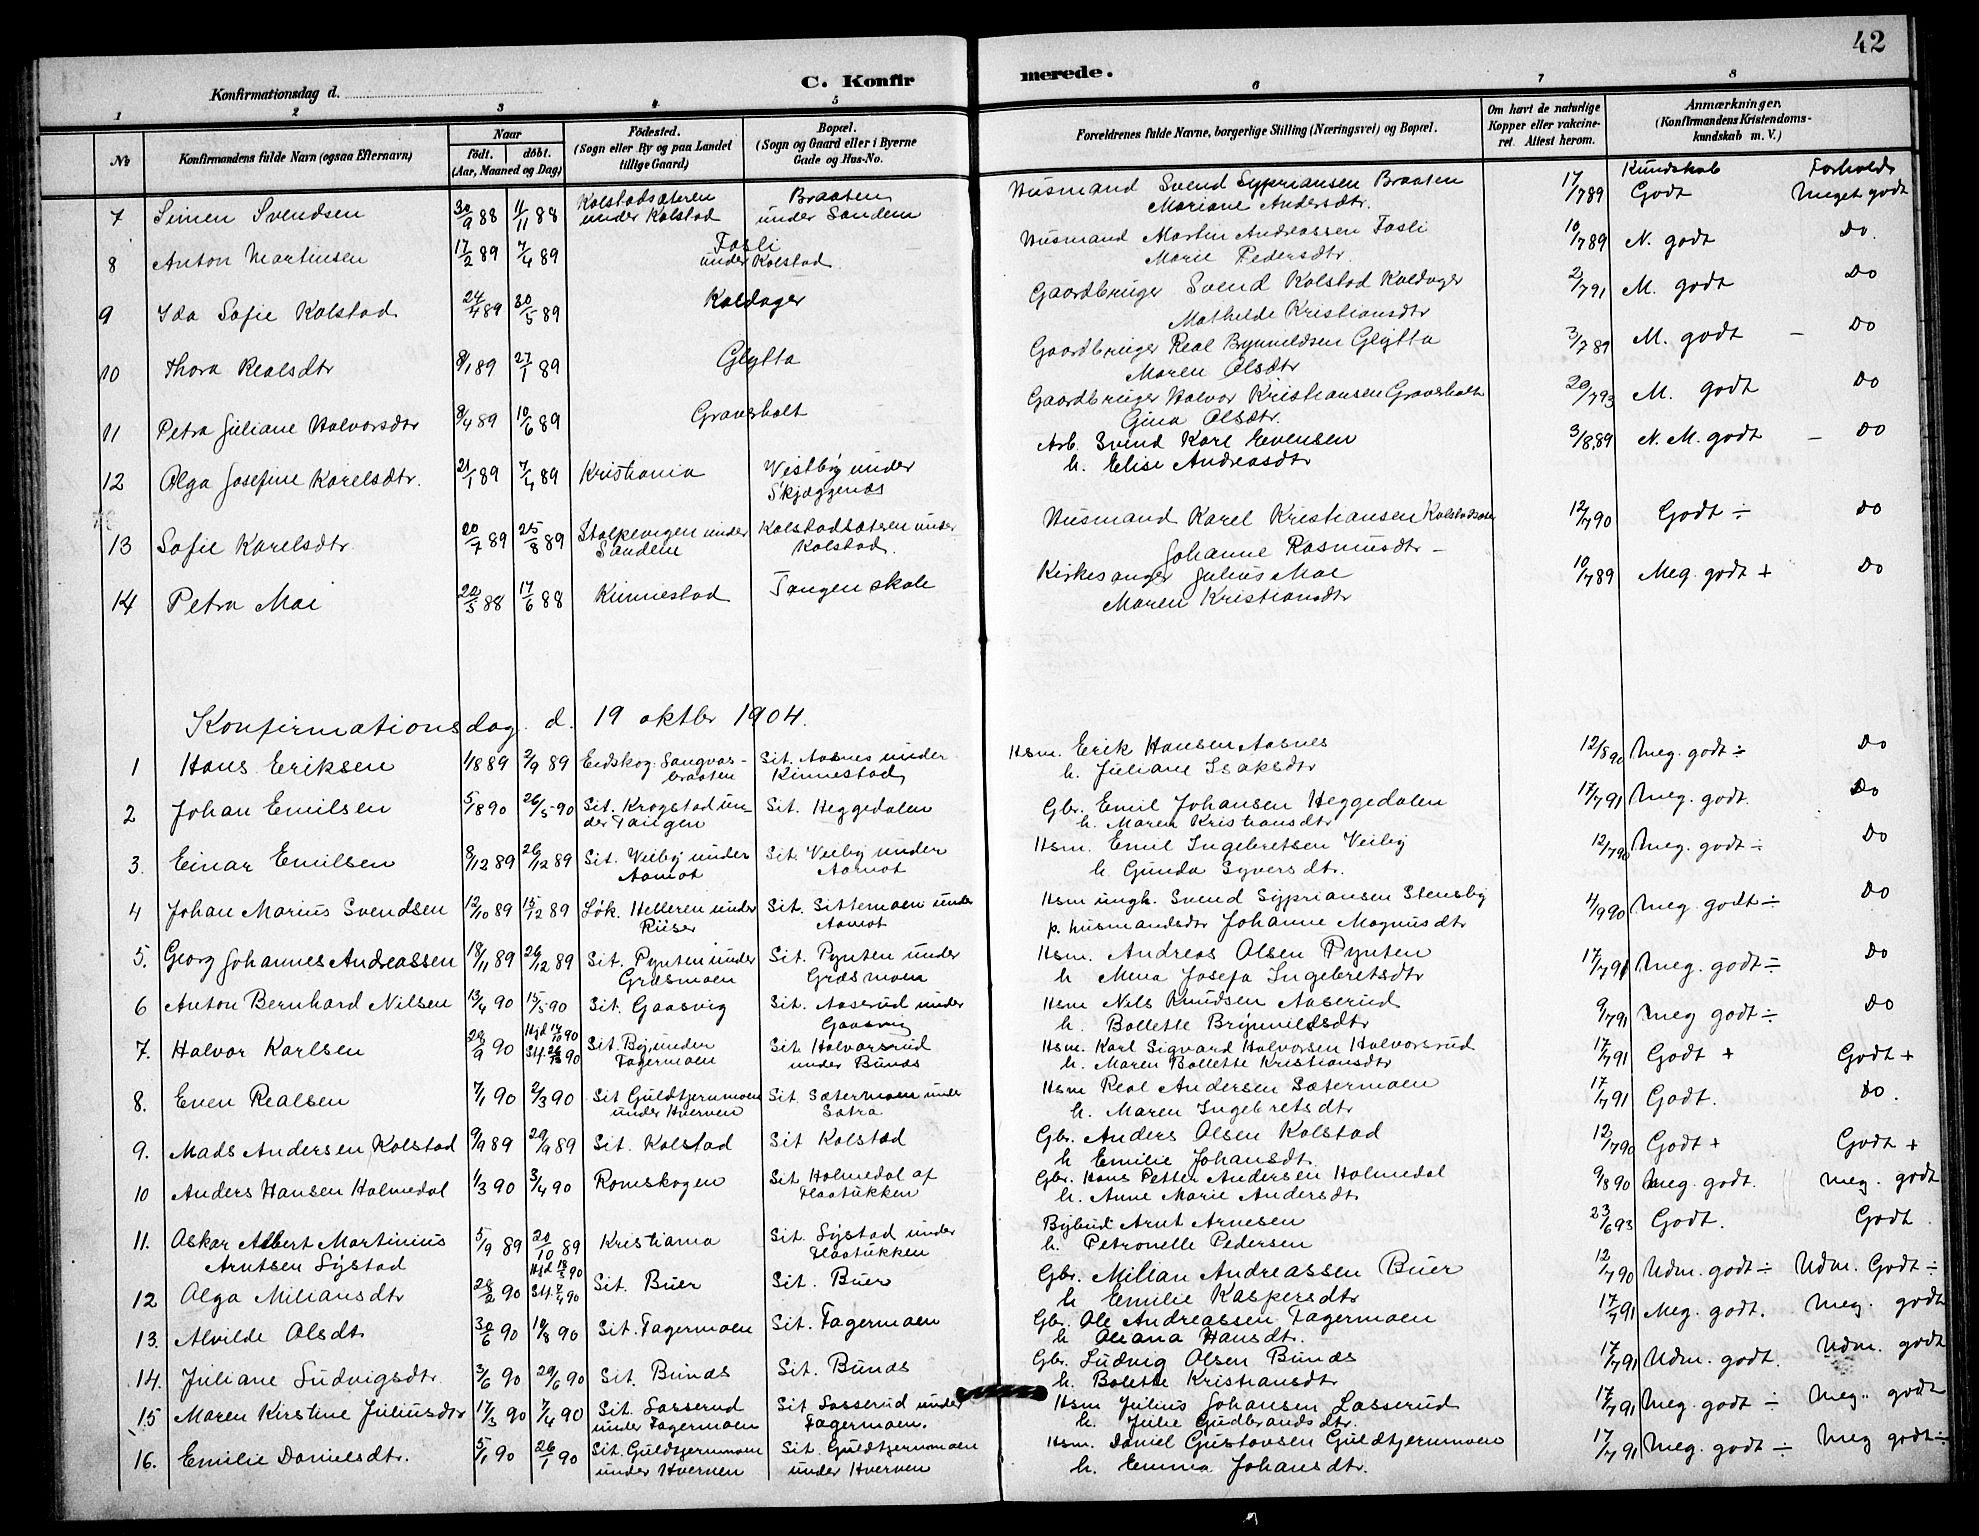 42
C. Konfirmerede.
Konfirmationsdag d.
1 2 3 4 5 6 7 8
No
Konfirmandens fulde Navn (ogsaa Efternavn)
Naar
født. døbt.
(Aar, Maaned og Dag)
Fødested.
(Sogn eller By og paa Landet
tillige Gaard)
Bopæl.
(Sogn og Gaard eller i Byerne
Gade og Hus-No.
Forældrenes fulde Navne, borgerlige Stilling (Næringsvei) og Bopæl.
Om havt de naturlige
Kopper eller vakcine-
ret. Attest herom.
Anmærkninger.
(Konfirmandens Kristendoms-
kundskab m. V.)
Kundskab Forhold
7 Simen Svendsen 30/9 88 11/11 88 Kolstadsæteren under Kolstad Braaten under Sandem Husmand Svend Sypriansen Braaten Mariane Andersdtr. 17/7 89 Godt Meget godt
8 Anton Martinsen 17/2 89 7/4 89 Fosli under Kolstad Husmand Martin Andreassen Fosli Marie Pedersdtr. 10/7 89 N. godt Do.
9 Ida Sofie Kolstad 24/4 89 30/5 89 Kaldager Gaardbruger Svend Kolstad Kaldager Mathilde Kristiansdtr 2/7 91 M. godt Do
10 Thora Realsdtr 8/1 89 27/1 89 Glytta Gaardbruger Real Brynnildsen Glytta Maren Olsdtr 3/7 89 M. godt – Do
11 Petra Juliane Halvorsdtr 8/4 89 10/6 89 Graversholt Gaardbruger Halvor Kristiansen Graversholt Gina Olsdtr. 20/7 93 M. godt Do
12 Olga Josefine Karelsdtr. 21/1 89 7/4 89 Kristiania Vestby under Skjæggenæs Arb. Svend Karl Evensen h. Elise Andreasdtr 3/8 89 N. M. godt – Do
13 Sofie Karelsdtr. 20/7 89 25/8 89 Stolpevigen under Sandem Kolstadsæteren under Kolstad. Husmand Karel Kristiansen Kolstadsæter Johanne Rasmusdtr – 12/7 90 Godt ÷ Do
14 Petra Moe 20/5 88 17/6 88 Kinnestad Tangen skole Kirkesanger Julius Moe Maren Kristiansdtr 10/7 89 Meg. godt + Do
Konfirmationsdag d. 19 oktbr 1904.
1 Hans Eriksen 1/8 89 2/9 89 Eidskog: Sangvasbraaten Sit. Aasnes under Kinnestad Hsm. Erik Hansen Aasnes h. Juliane Isaksdtr 12/8 90 Meg. godt ÷ Do
2 Johan Emilsen 5/8 90 26/5 90 Sit. Krogstad under Tangen Sit. Heggedalen Gbr. Emil Johansen Heggedalen h. Maren Kristiansdtr 17/7 91 Meg. godt. Do
3. Einar Emilsen 8/12 89 26/12 89 Sit. Veiby under Aamot Sit. Veiby under Aamot Hsm. Emil Ingebretsen Veiby h. Gunda Syversdtr. 12/7 90 Meg. godt ÷ Do
4 Johan Marius Svendsen 12/10 89 15/12 89 Høk. Helleren under Riiser Sit. Sittemoen under Aamot Hsm ungk. Svend Sypriansen Stensby p. husmandsdtr Johanne Magnusdtr 4/9 90 Meg. godt ÷ Do
5. Georg Johannes Andreassen 18/11 89 26/12 89 Sit. Pynten under Græsmoen Sit. Pynten under Græsmoen Hsm. Andreas Olsen Pynten h Mina Josefa Ingebretsdtr 17/7 91 Meg. godt ÷ Do
6 Anton Bernhard Nilsen 13/4 90 15/5 90 Sit. Gaasvig Sit. Aaserud under Gaasvig Hsm Nils Knudsen Aaserud h. Bollette Brynnildsdtr 9/7 91 Meg godt ÷ Do
7. Halvor Karlsen 90 Hjd 90 St. 90 Sit. By under Fagermoen Sit. Halvorsrud under Bunæs Hsm. Karl Sigvard Halvorsen Halvorsrud h. Maren Bollette Kristiansdtr 17/7 91 Godt + Godt +
8. Even Realsen 7/1 90 2/3 90 Sit Guldtjernmoen under Hverven Sit. Sætermoen under Sætra Hsm Real Andersen Sætermoen h. Maren Ingebretsdtr 17/7 91 Godt. Do.
9. Mads Andersen Kolstad 9/9 89 29/9 89 Sit. Kolstad Sit Kolstad Gbr. Anders Olsen Kolstad h Emilie Johansdt. 12/7 90 Godt + Godt +
10 Anders Hansen Holmedal 1/3 90 3/4 90 Romskogen Sit Holmedal af Flaatukken Gbr. Hans Petter Andersen Holmedal h. Anne Marie Andersdtr 9/8 90 Meg. godt. Meg. godt
11. Oskar Albert Martinius Arntsen Systad 5/9 89 20/10 89 Kristiania Sit. Systad under Flaatukken Bybud Arnt Arnesen h. Petronelle Pedersen 23/6 93 Godt. Godt
12 Olga Miliansdtr 28/2 90 Hjd 90 St. 90 Sit. Buer Sit. Buer Gbr. Milian Andreassen Buer h Emilie Kaspersdtr 12/7 90 Udm. godt ÷ Udm. Godt ÷
13. Alvilde Olsdt 30/6 90 10/8 90 Sit. Fagermoen Sit. Fagermoen Gbr. Ole Andreassen Fagermoen h Oleana Hansdt. 17/7 91 Meg. godt. Meg. godt
14. Juliane Ludvigsdtr. 3/6 90 29/6 90 Sit. Bunæs Sit. Bunæs Gbr. Ludvig Olsen Bunæs h. Bolette Kristiansdtr 17/7 91 Udm. godt. Udm. godt
15 Maren Kirstine Juliusdtr 17/3 90 7/4 90 Sit. Lasserud under Fagermoen Sit Lasserud under Fagermoen. Hsm Julius Johansen Lasserud h. Julie Gudbrandsdtr. 17/7 91 Meg. godt ÷ Meg. godt
16. Emilie Danielsdtr. 5/1 90 26/1 90 Sit. Guldtjernmoen under Hverven Sit. Guldtjernmoen under Hverven Hsm. Daniel Gustavsen Guldtjernmoen h. Emma Johansdtr. 17/7 91 Meg. godt ÷ Meg godt ÷